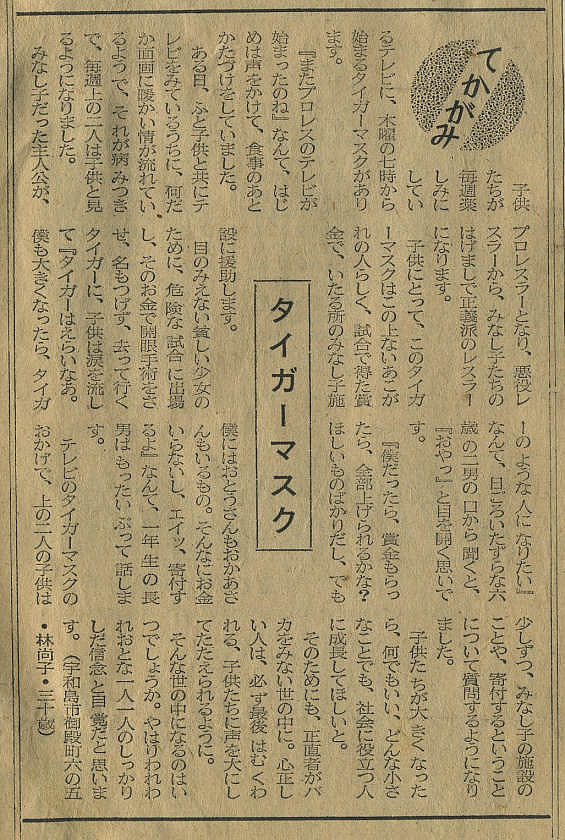 てかがみ
タイガーマスク
子供
たちが
毎週楽
しみに
してい
るテレビに、木曜の七時から
始まるタイガーマスクがあり
ます。
『またプロレスのテレビが
始まったのね』なんて、はじ
めは声をかけて、食事のあと
かたづけをしていました。
ある日、ふと子供と共にテ
レビをみているうちに、何だ
か画面に暖かい情が流れてい
るようで、それが病みつき
で、毎週上の二人は子供と見
るようになりました。
みなし子だった主人公が、
プロレスラーとなり、悪役レ
スラーから、みなし子たちの
はげましで正義派のレスラー
になります。
子供にとって、このタイガ
ーマスクはこの上ないあこが
れの人らしく、試合で得た賞
金で、いたる所のみなし子施
設に援助します。
目のみえない貧しい少女の
ために、危険な試合に出場
し、そのお金で開眼手術をさ
せ、名もつげず、去って行く
タイガーに、子供は涙を流し
て『タイガーはえらいなあ。
僕も大きくなったら、タイガ
ーのような人になりたい』
なんて、日ごろいたずらな六
歳の二男の口から聞くと、
『おやっ』と目を開く思いで
す。
『僕だったら、賞金もらっ
たら、全部上げられるかな？
ほしいものばかりだし、でも
僕にはおとうさんもおかあさ
んもいるもの。そんなにお金
いらないし、エイッ、寄付す
るよ』なんて、一年生の長
男はもったいぶって話しま
す。
テレビのタイガーマスクの
おかげで、上の二人の子供は
少しずつ、みなし子の施設の
ことや、寄付するということ
について質問するようになり
ました。
子供たちが大きくなった
ら、何でもいい、どんな小さ
なことでも、社会に役立つ人
に成長してほしいと。
そのためにも、正直者がバ
カをみない世の中に。心正し
い人は、必ず最後はむくわ
れる、子供たちに声を大にし
てたたえられるように。
そんな世の中になるのはい
つでしょうか。やはりわれわ
れおとな一人一人のしっかり
した信念と自覚だと思いま
す。（宇和島市御殿町六の五
・林尚子・三十歳）